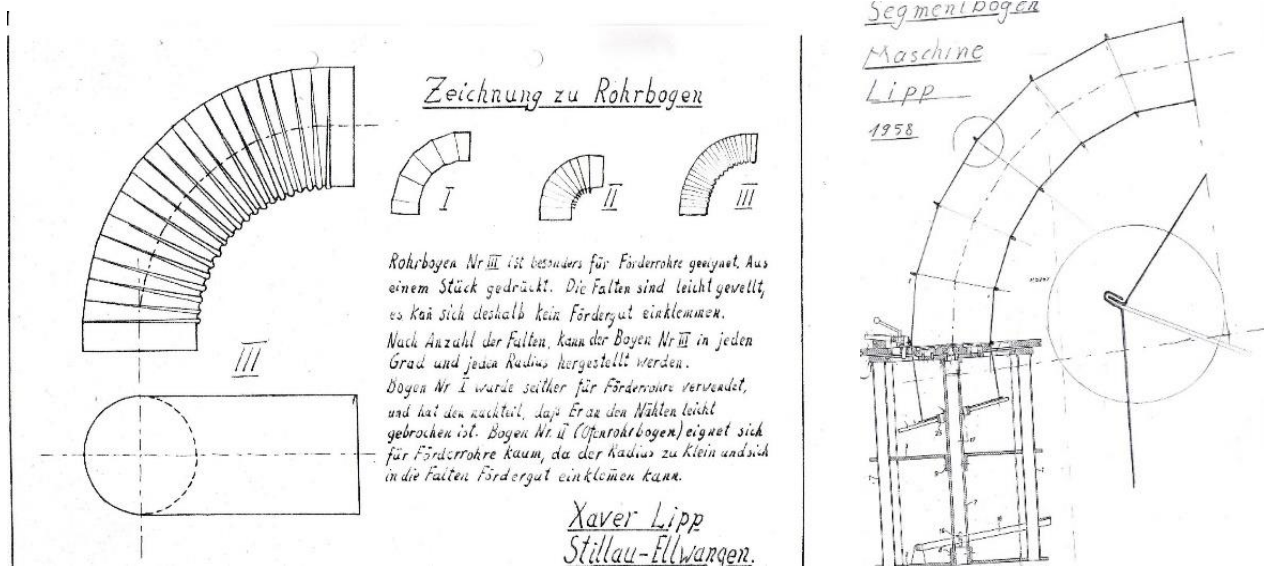 Zeichnung zu Rohrbogen
I
II
III
Rohrbogen Nr III ist besonders für Förderrohre geeignet. Aus
einem Stück gedrückt. Die Falten sind leicht gewellt,
es kañ sich deshalb kein Fördergut einklemmen.
Nach Anzahl der Falten, kann der Bogen Nr III in jeden
Grad und jeden Radius hergestellt werden.
Bogen Nr I wurde seither für Förderrohre verwendet,
und hat den nachteil, daß Er an den Nähten leicht
gebrochen ist. Bogen Nr. II (Ofenrohrbogen) eignet sich
für Förderrohre kaum, da der Radius zu klein und sich
in die Falten Fördergut einklem̃en kann.
III
Xaver Lipp
Stillau-Ellwangen.
Segmentbogen
Maschine
Lipp
1958